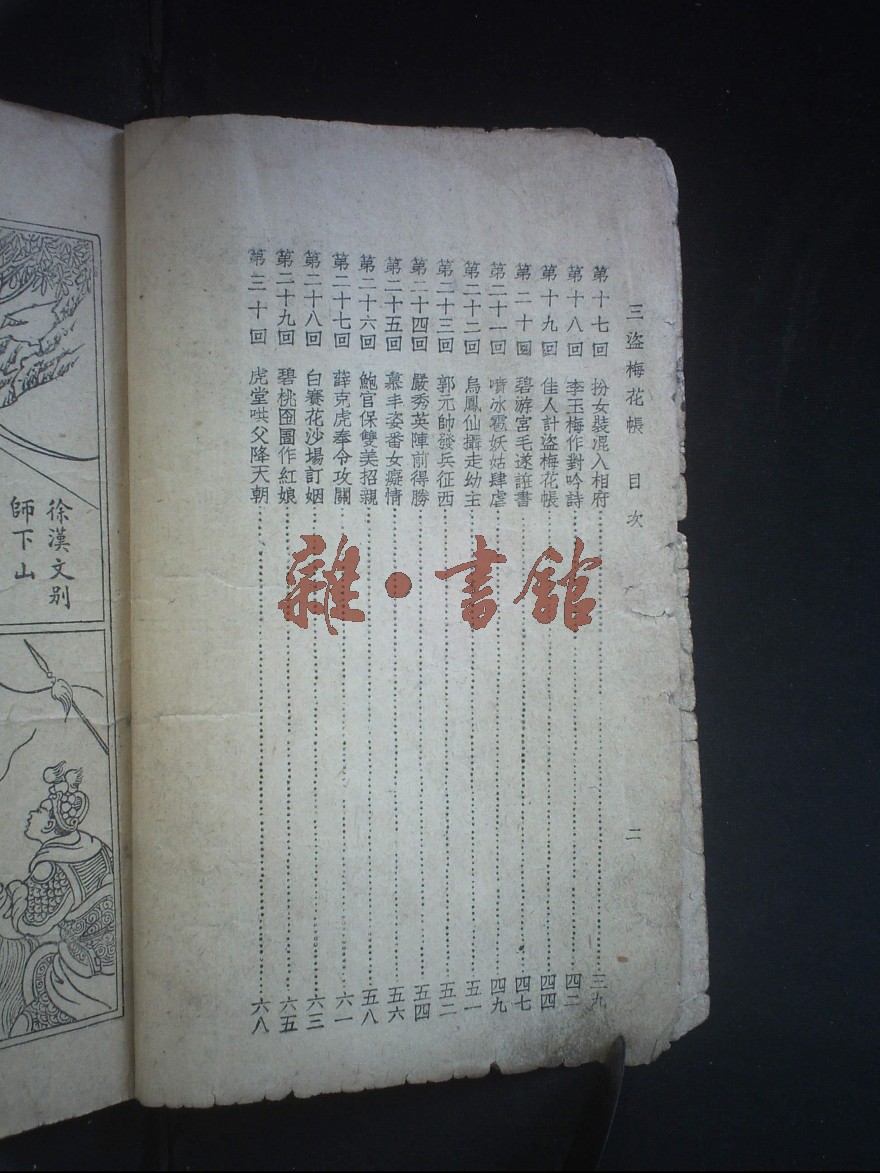 三盜梅花帳　目次　二
第十七回　扮女裝混入相府　三九
第十八回　李玉梅作對吟詩　四二
第十九回　佳人計盜梅花帳　四四
第二十回　碧游宮毛遂誆書　四七
第二十一回　噴冰雹妖姑肆虐　四九
第二十二回　烏鳳仙攝走幼主　五一
第二十三回　郭元帥發兵征西　五二
第二十四回　嚴秀英陣前得勝　五四
第二十五回　慕丰姿番女癡情　五六
第二十六回　鮑官保雙美招親　五八
第二十七回　薛克虎奉令攻關　六一
第二十八回　白賽花沙場訂姻　六三
第二十九回　碧桃囹圄作紅娘　六五
第三十回　虎堂哄父降天朝　六八
徐漢文别
師下山
雜·書館